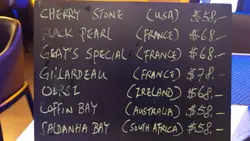 CHERRY STONE (USA) $58.—
PEARL (FRANCE) $68.—
GRAY'S SPECIAL (FRANCE) $68.—
GILLARDEAU (FRANCE) $78.—
(IRELAND) $68.—
COFFIN BAY (AUSTRALIA) $58.—
SALDANHA BAY (SOUTH AFRICA) $58.—